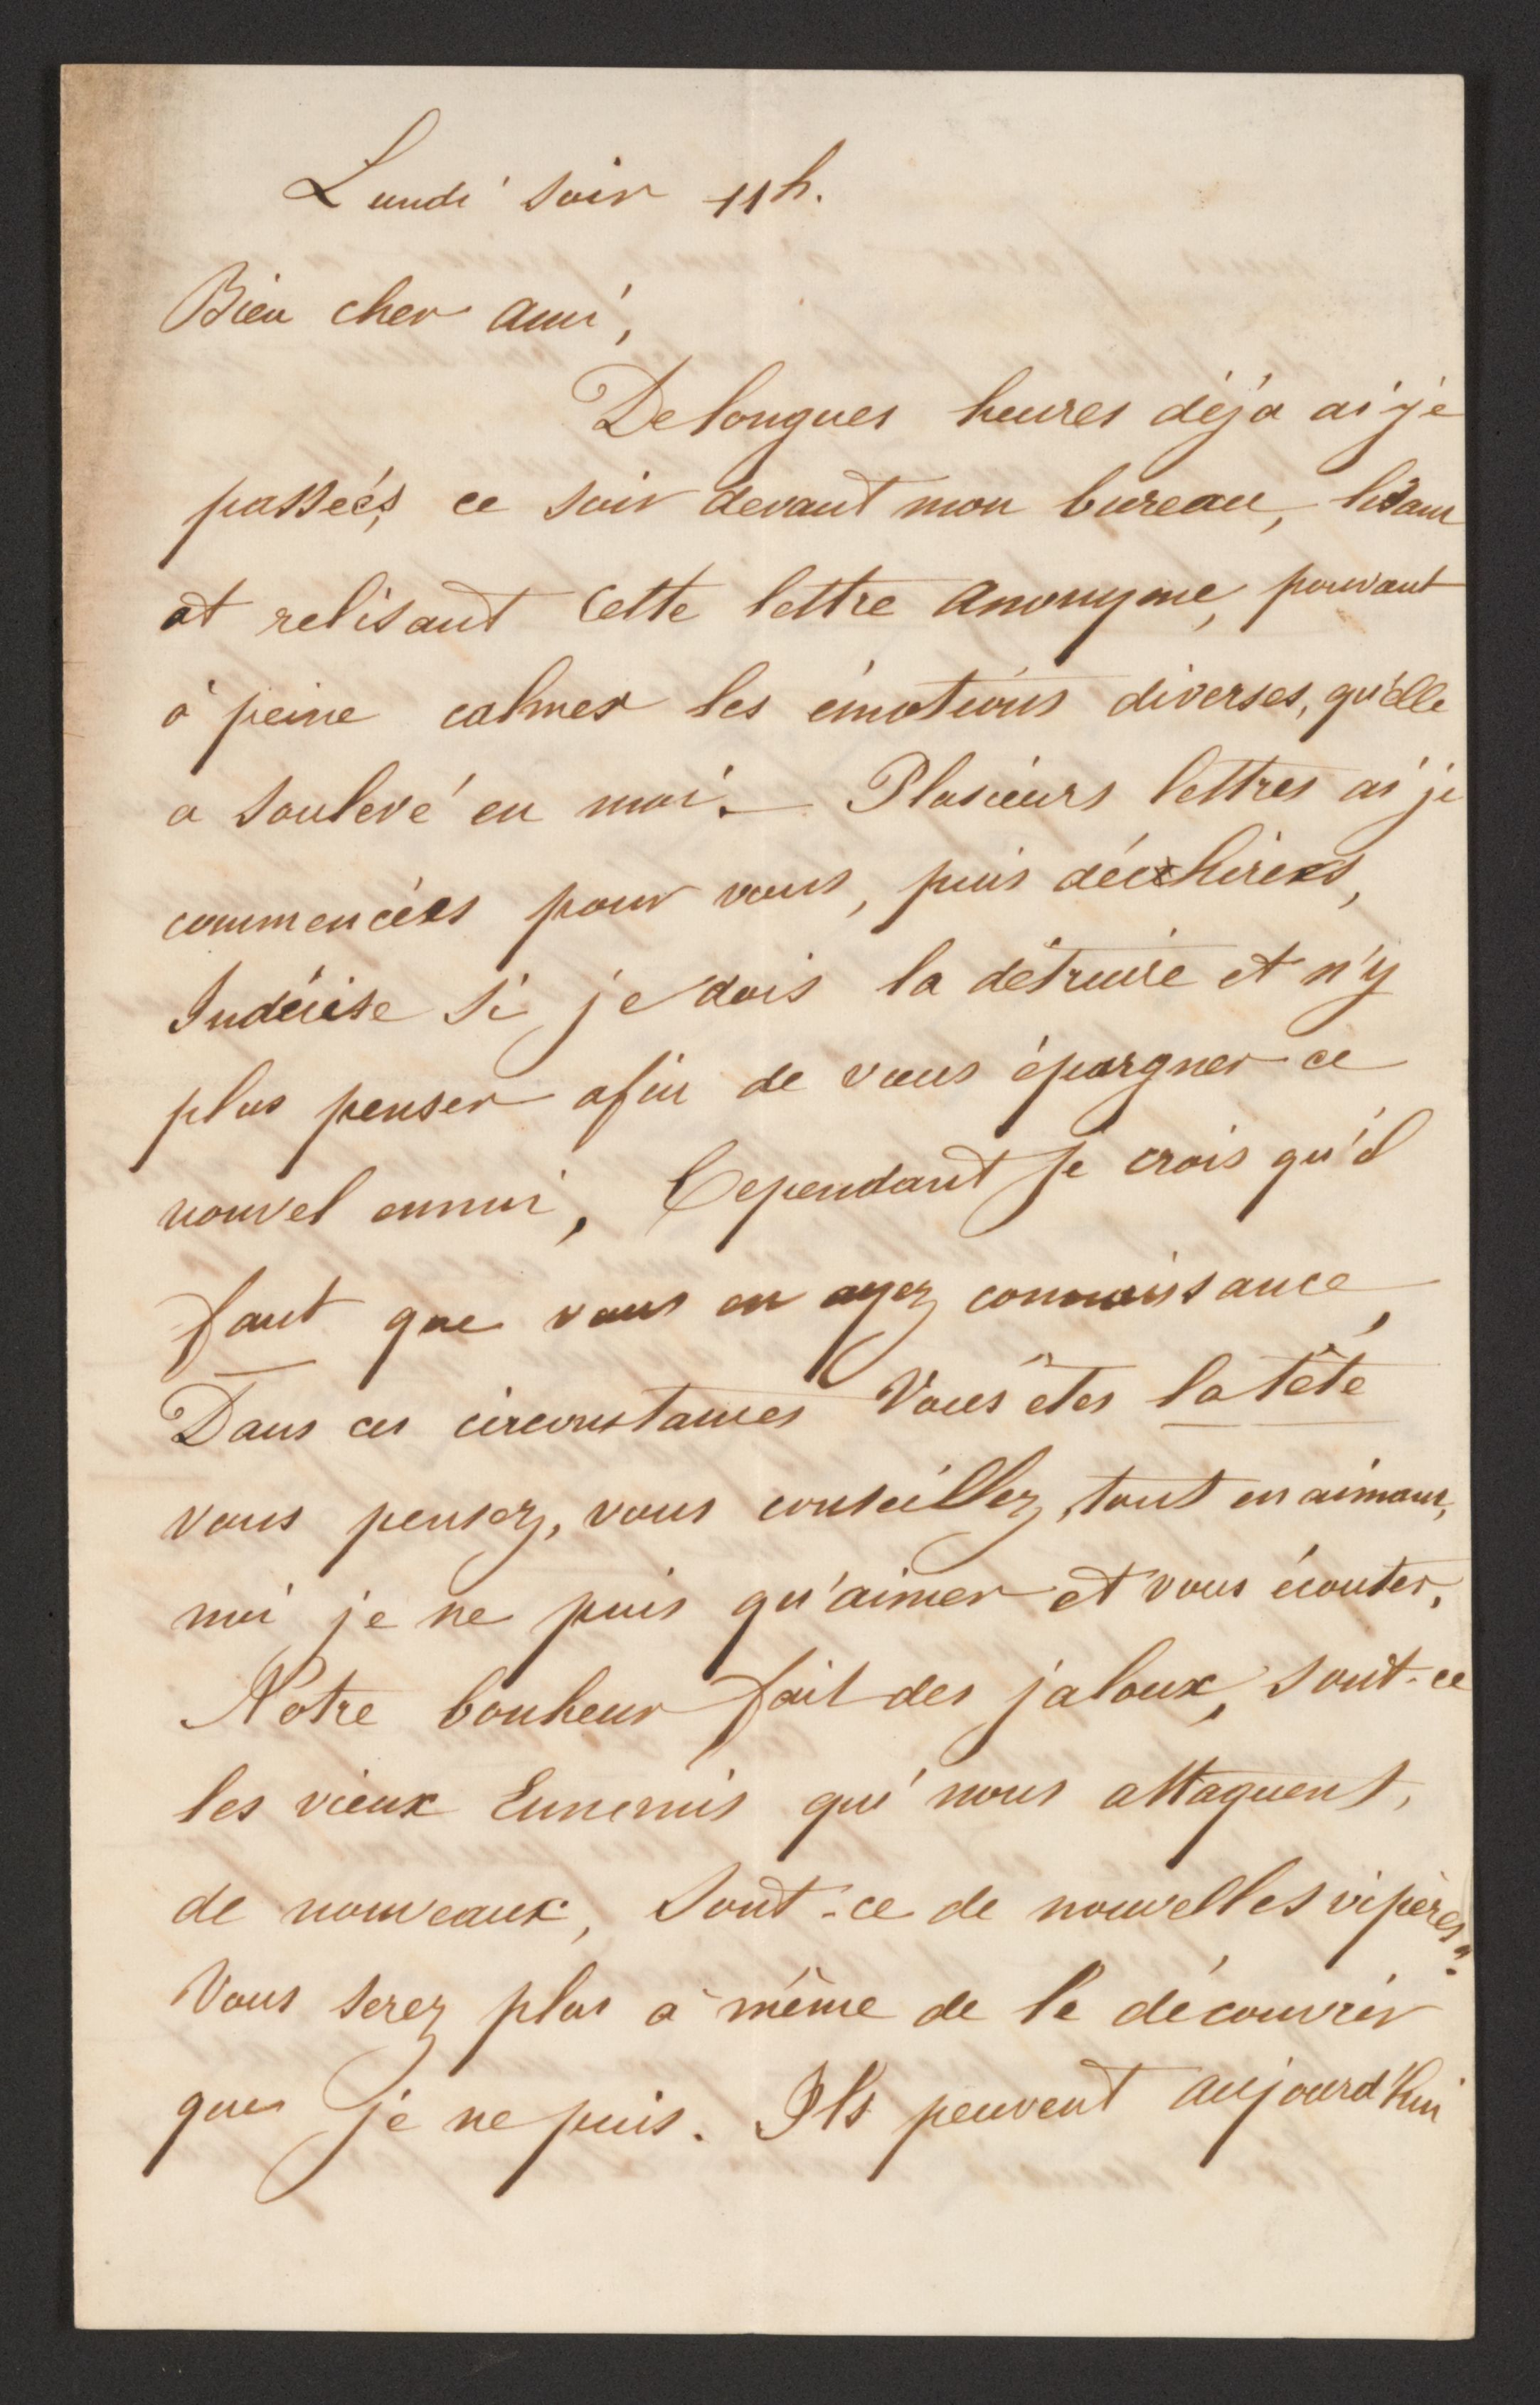 Lundi soir 11h.
Bien cher ami,
De longues heures déjà ai je
passées ce soir devant mon bureau, lisant
et relisant cette lettre anonyme, pouvant
à peine calmer les émotions diverses, qu'elle
a soulevé en moi. — Plusieurs lettres ai je
commencées pour vous, puis déchirées,
Indécise si je dois la détruire et n'y
plus penser afin de vous épargner ce
nouvel ennui, Cependant je crois qu'il
faut que vous en ayez connaissance,
Dans ces circonstances Vous êtes la tête
vous pensez, vous conseillez, tout en aimant,
moi je ne puis qu'aimer et vous écouter,
Notre bonheur fait des jaloux, sont-ce
les vieux Ennemis qui nous attaquent,
de nouveaux, Sont-ce de nouvelles vipères?
Vous serez plus à même de le découvrir
que je ne puis. Ils peuvent aujourd'hui